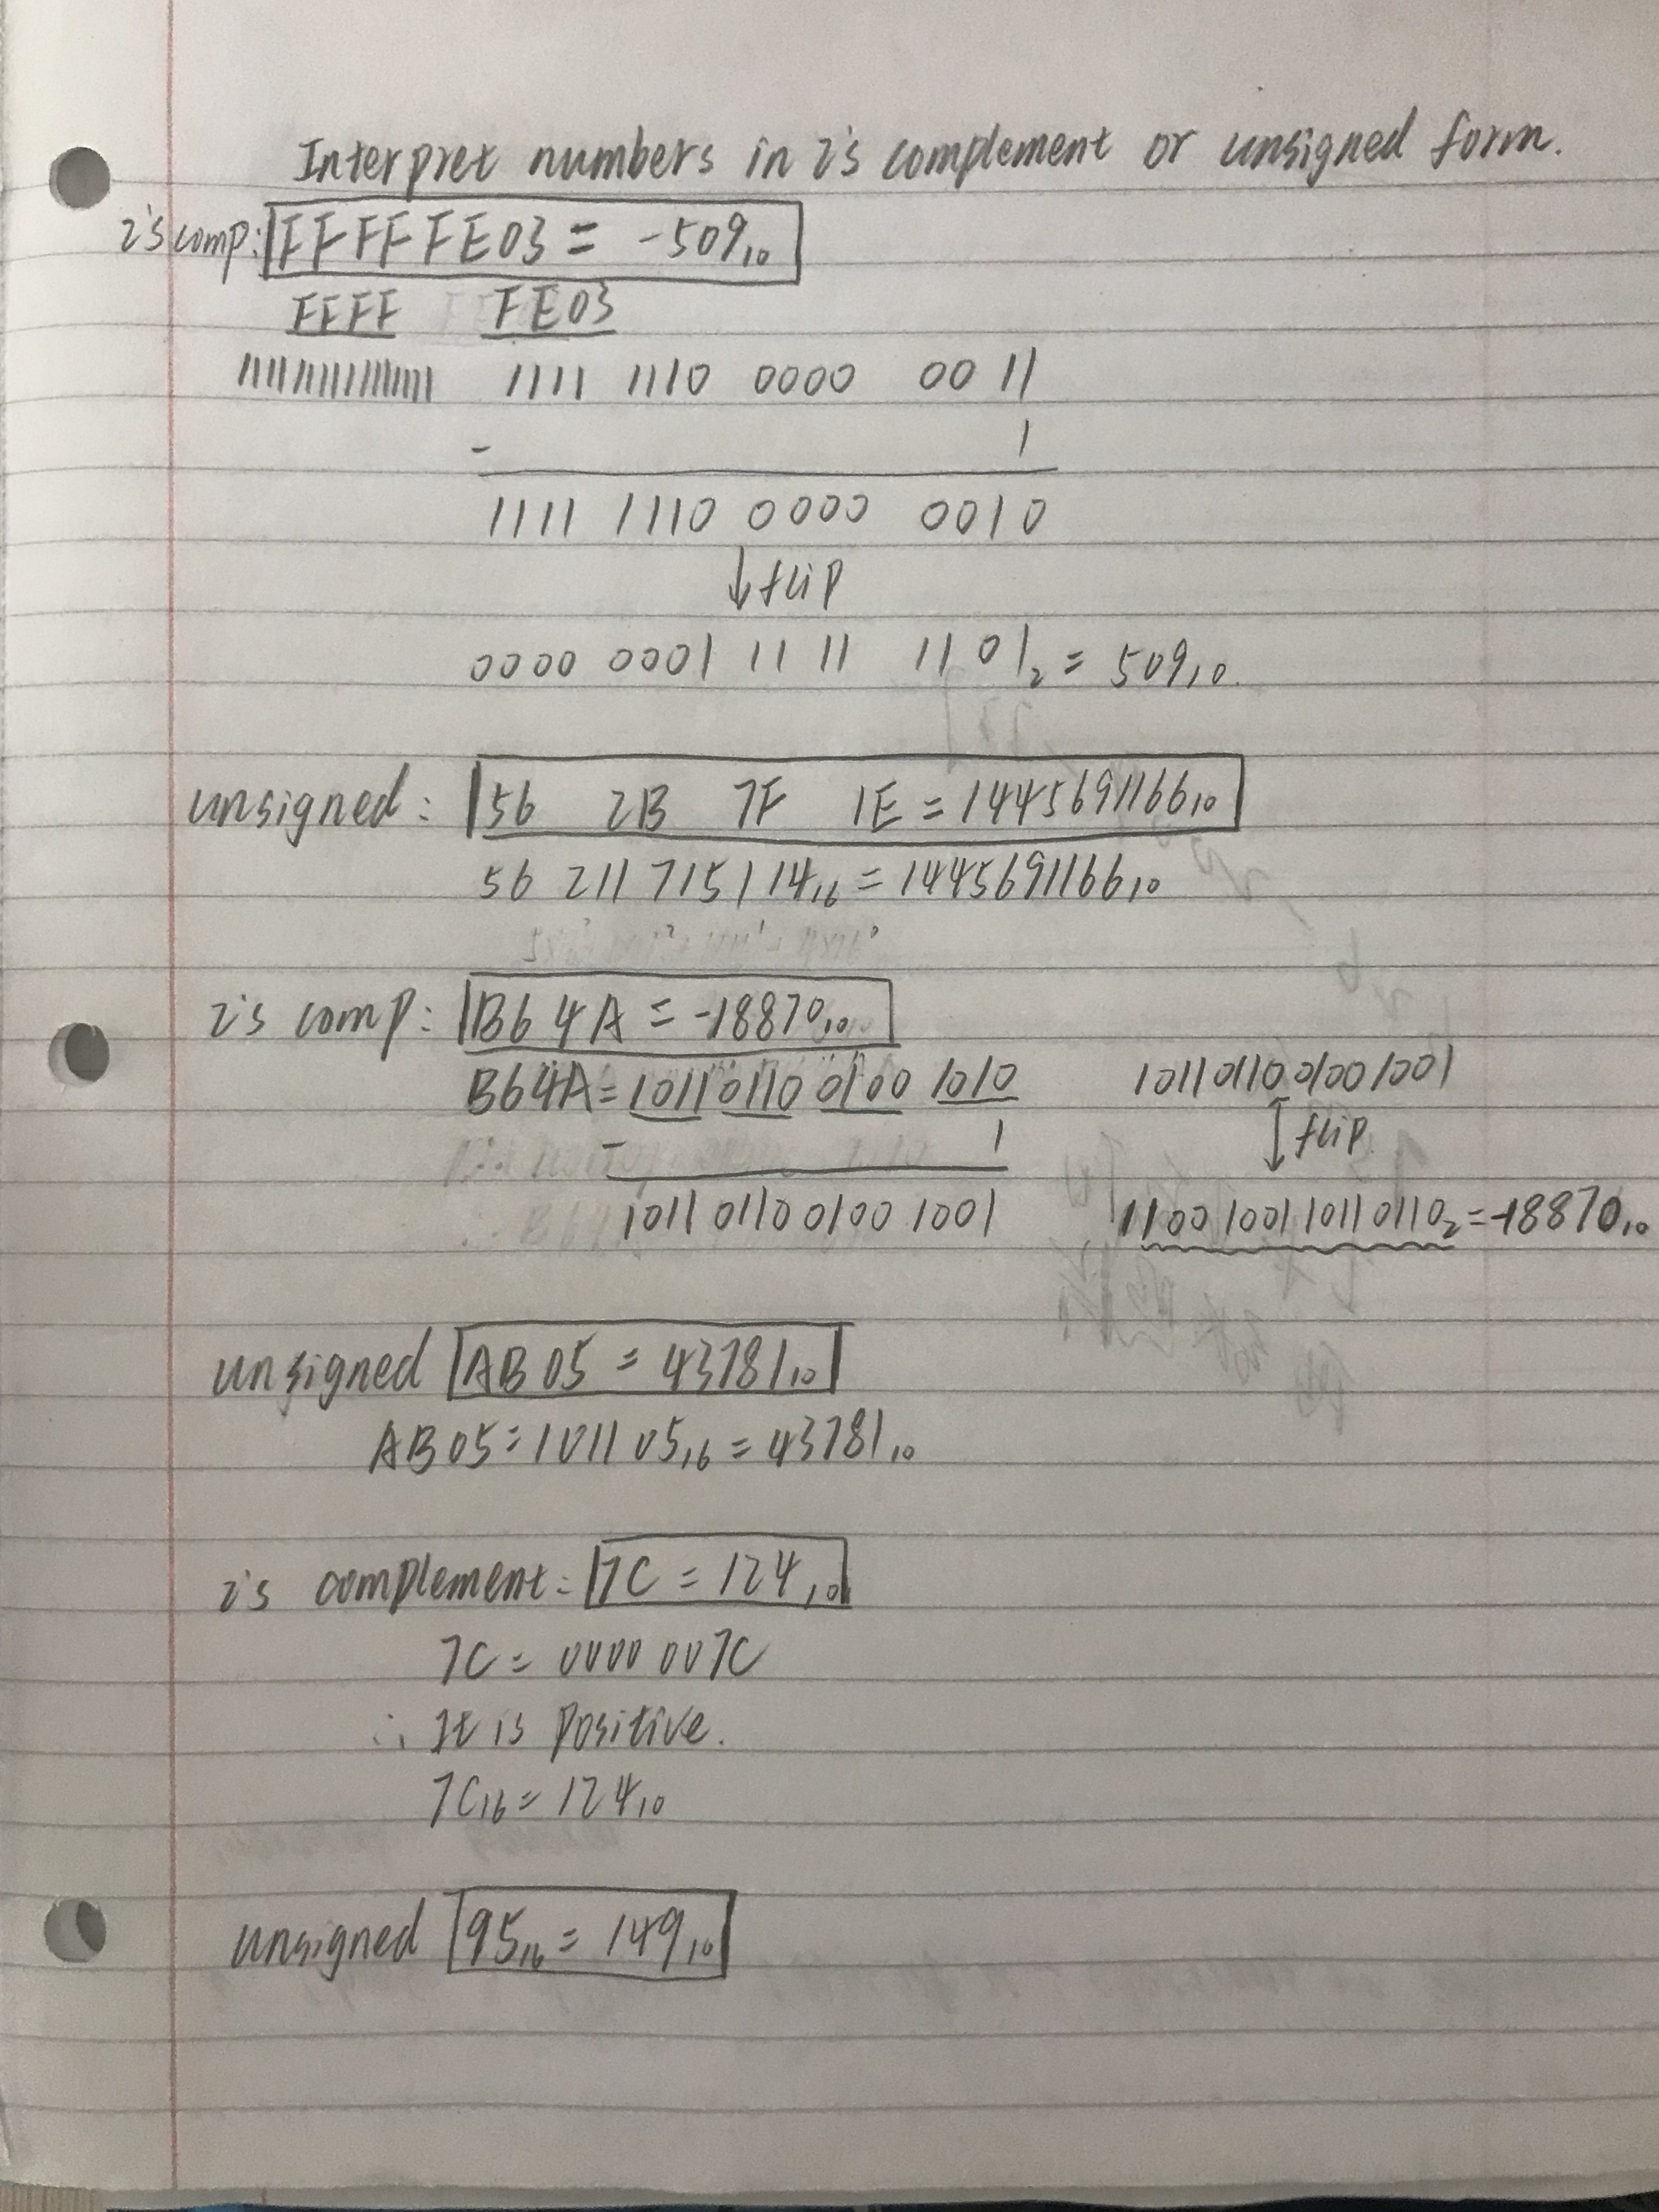 Interpret numbers in 2's complement or unsigned form.
2's comp: FFFF FE03 = -509₁₀
FFFF FE03
1111111111111111 1111 1110 0000 0011
- 1
1111 1110 0000 0010
↓ flip
0000 0001 1111 1101₂ = 509₁₀.
unsigned: 56 2B 7F 1E = 1445691166₁₀
56 211 715 114₁₆ = 1445691166₁₀
2's comp: B64A = -18870₁₀
B64A = 1011 0110 0100 1010 1011 0110 0100 1001
- 1 ↓ flip
1011 0110 0100 1001 1100 1001 1011 0110₂ = -18870₁₀
unsigned AB05 = 43781₁₀
AB05 = 1011 05₁₆ = 43781₁₀
2's complement: 7C = 124₁₀
7C = 0000 007C
∴ It is positive.
7C₁₆ = 124₁₀
unsigned 95₁₆ = 149₁₀